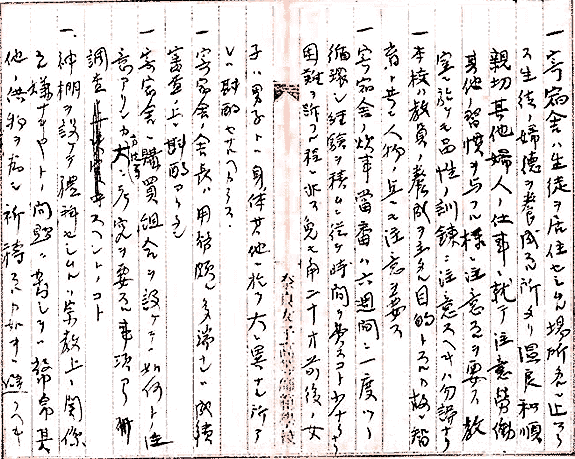 一 寄宿舎ハ生徒ヲ居住セシムル場所タルニ止マラ
ス生徒ノ婦徳ヲ養成スル所ナリ温良和順
親切其他婦人ノ仕事ニ就テ注意労働
其他ノ習慣ヲ与フル様ニ注意スルヲ要ス教
室ニ於テモ品性ノ訓練ニ注意スヘキハ勿論ナリ
一 本校ハ教員ノ養成ヲ主タル目的トスルカ故ニ智
育ト共ニ人物ノ点ニモ注意ヲ要ス
一 寄宿舎ノ炊事当番ハ六週間ニ一度ツヽ
循環シ経験ヲ積ムニ従テ時間ヲ費スコト少ナキモ
困難ヲ訴フル程ニ非ス兎モ角二十才前後ノ女
子ハ男子トハ身体其他ニ於テ大ニ異ナル所アリ
斟酌セサルヘカラス
一 寄宿舎々長ハ用務頗ル多端ナレハ成績
審査上ニ斟酌アリタシ
一 寄宿舎ニ購買組合ヲ設ケテハ如何トノ注
意アリシカ大ニ考究ヲ要スル事項アリ
調査スヘシトノコト
一 神棚ヲ設ケテ礼拝セシムルハ宗教上ノ関係
ヲ嫌ナキヤトノ問題ニ対シテハ
他ノ供物ヲ為シ祈祷スルカ如キハ避クヘキ
奈良女子高等師範学校